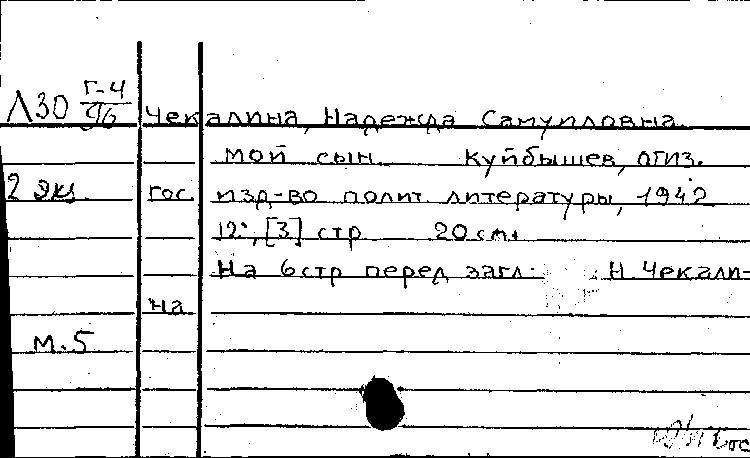 Л30 Г-4/96 Чекалина, Надежда Самуиловна.
Мой сын. Куйбышев, Огиз.
2 экз. Гос. изд-во полит. литературы, 1942
12, [3] стр 20 см.
На 6 стр перед загл: Н. Чекали-
на
М.5